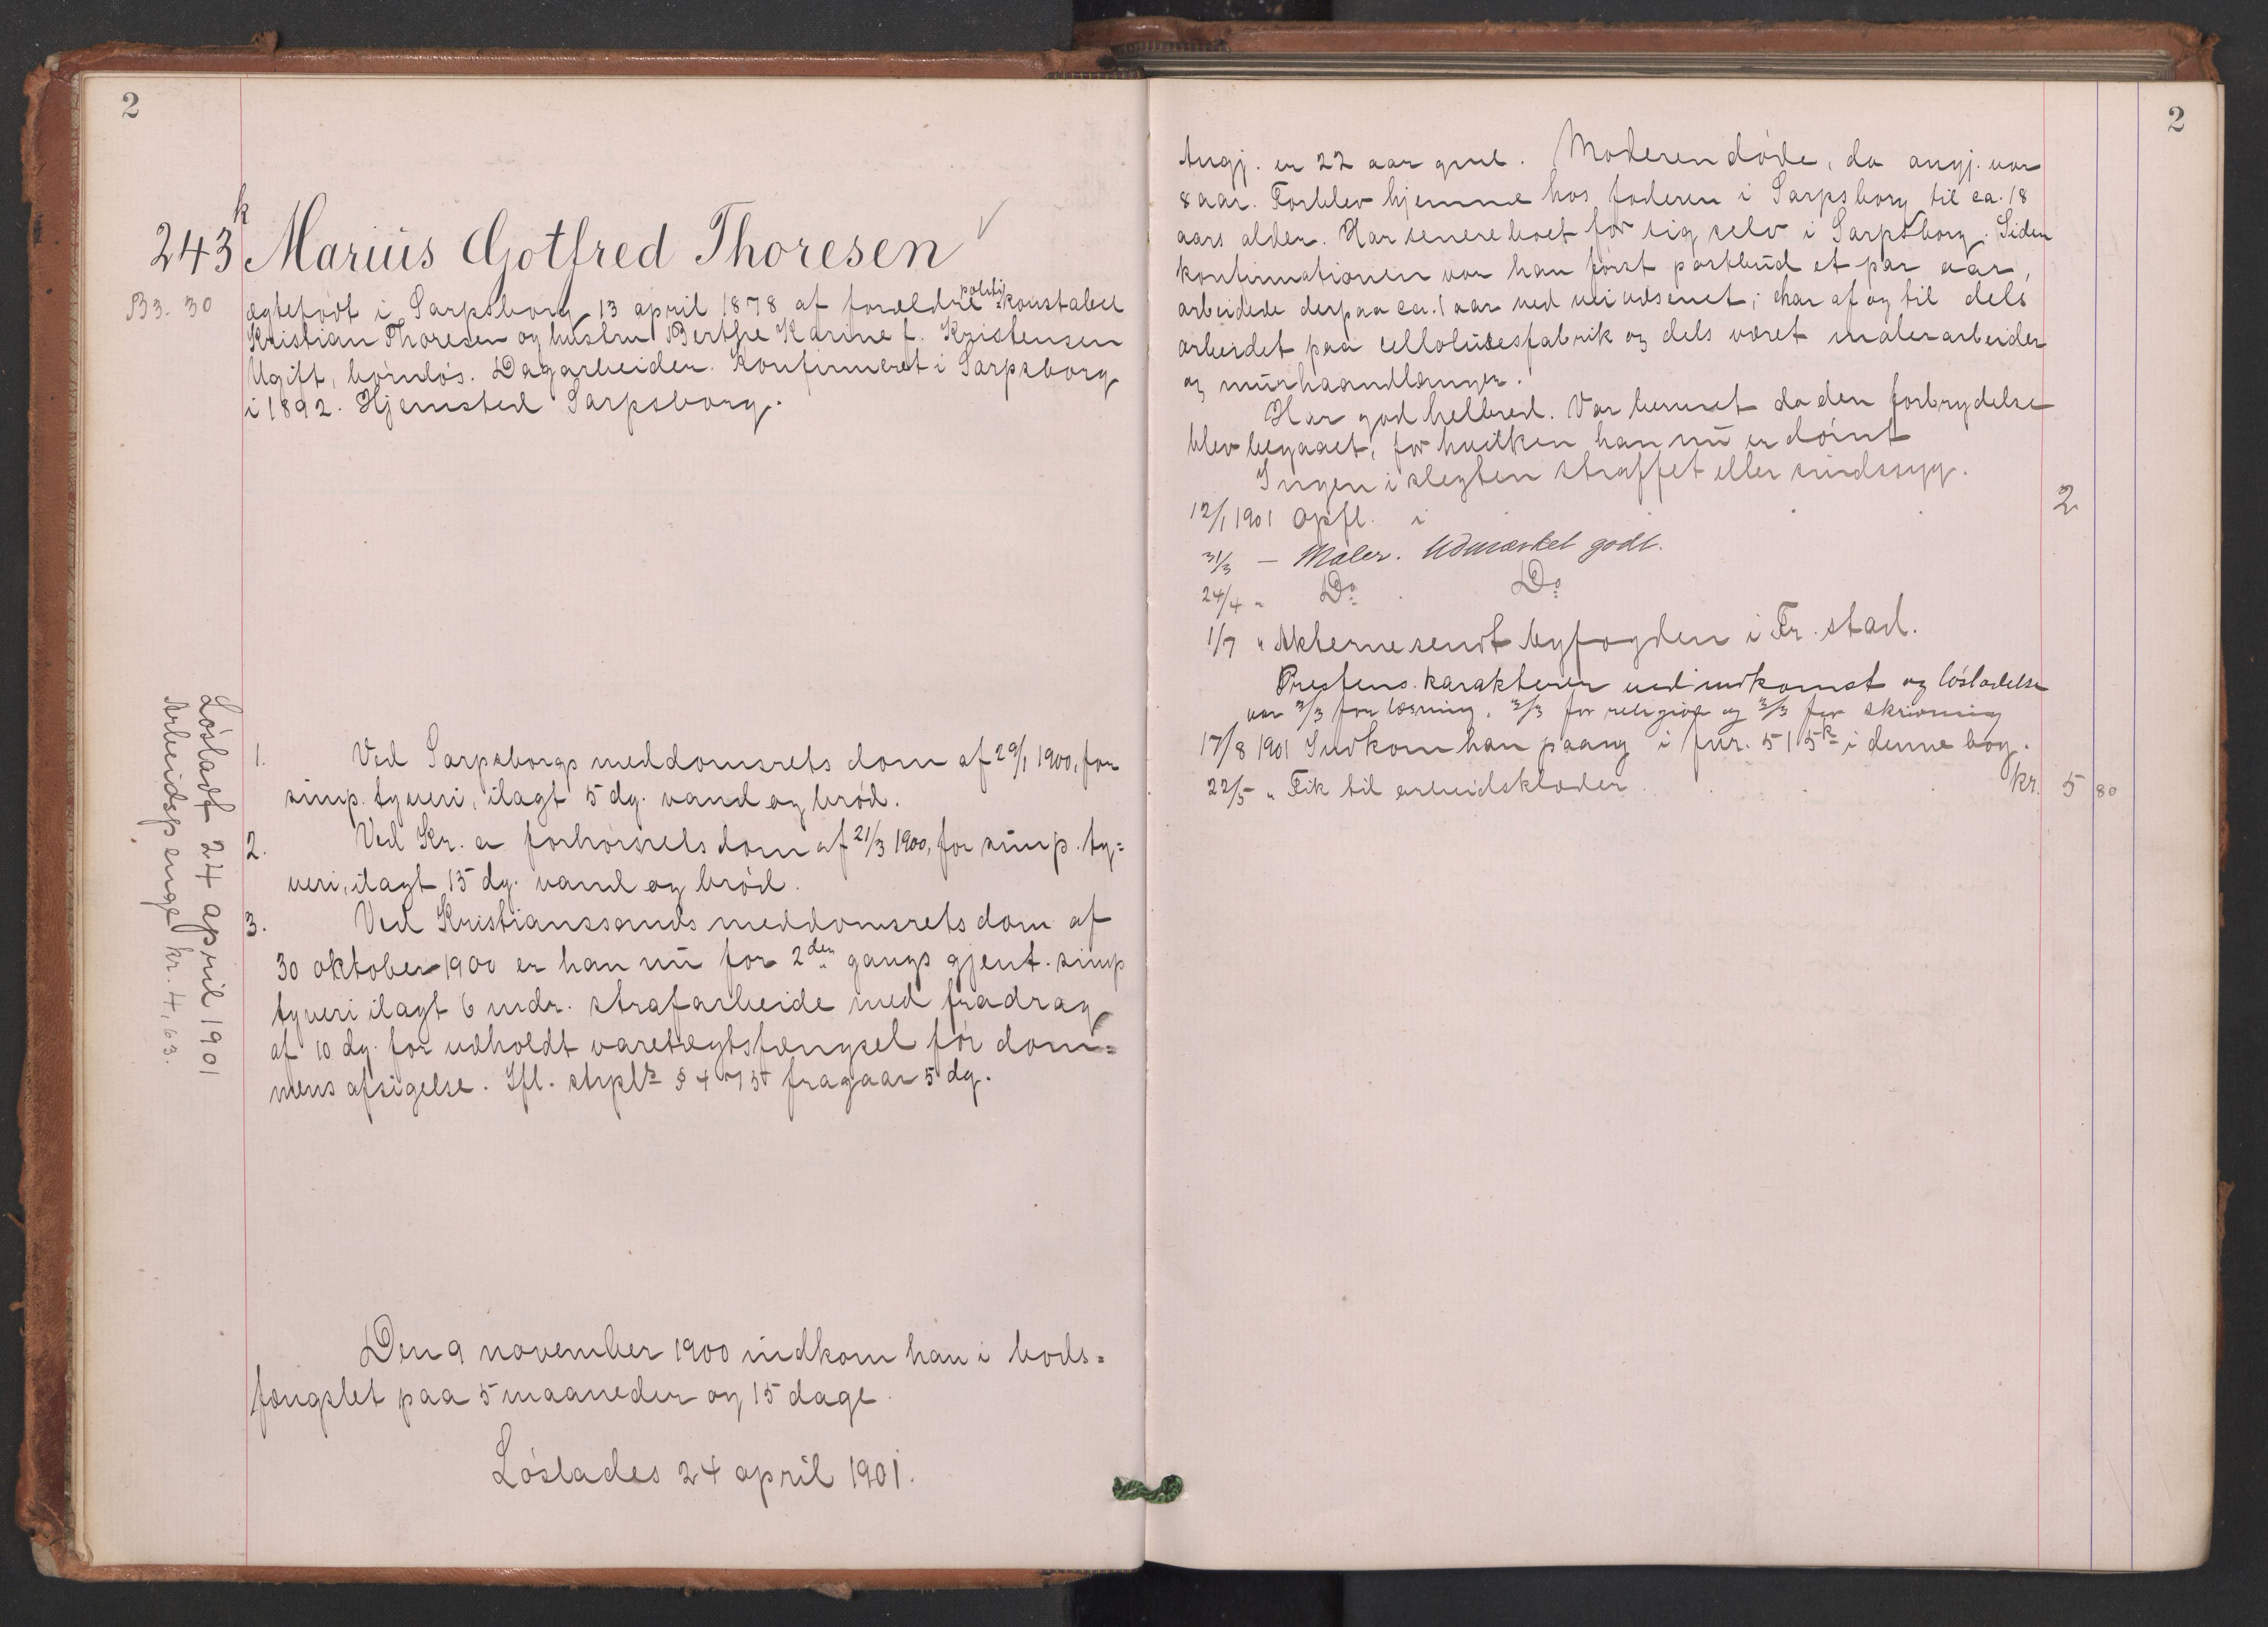 2
243k Mariüs Gotfred Thoresen
B3. 30
ægtefødt i Sarpsborg 13 april 1878 af forældre politi-konstabel
Kristian Thoresen og hustru Berthe Karine f. Kristensen
Ugift, børnløs. Dagarbeider. Konfirmeret i Sarpsborg
i 1892. Hjemsted Sarpsborg.
Løsladt 24 april 1901
Arbeidspenge kr. 4,63.
1. Ved Sarpsborgs meddomsrets dom af 29/1 1900, for
simp. tyveri, ilagt 5 dg. vand og brød.
2. Ved Kr. a forhørsrets dom af 21/3 1900, for simp. ty=
veri, ilagt 15 dg. vand og brød.
3. Ved Kristianssands meddomsrets dom af
30 oktober 1900 er han nü for 2den gangs gjent. simp
tyveri ilagt 6 mdr. strafarbeide med fradrag
af 10 dg. for udholdt varetægtsfængsel før dom=
mens afsigelse. Ifl. § 4 fragaar 5 dg.
Den 9 november 1900 indkom han i bods=
fængslet paa 5 maaneder og 15 dage.
Løslades 24 april 1901.
2
Angj. er 22 aar gml. Moderen døde, da angj. var
8 aar. Forblev hjemme hos faderen i Sarpsborg til ca. 18
aars alder. Har senere boet for sig selv i Sarpsborg. Siden
konfirmationen var han først postbüd et par aar,
arbeidede derpaa ca. 1 aar ved veivæsenet; har af og til dels
arbeidet paa cellolüsesfabrik og dels været malerarbeider
og mürhaandlanger.
Har god helbred. Var beruset da den forbrydelse
blev begaaet, for hvilken han nü er dømt
Ingen i slegten straffet eller sindssyg.
12/1 1901 Opfl. i 2
31/3 — Maler. Udmærket godt.
24/4 " Do. Do.
1/7 " Akterne sendt byfogden i Fr.stad.
Prestens karakterer ved indkomst og løsladelse
var 3/3 for læsning, 3/3 for religion og 3/3 for skrivning
17/8 1901 Indkom han paany i fnr. 515k i denne bog.
22/5 " Fik til arbeidsklæder kr. 5 80